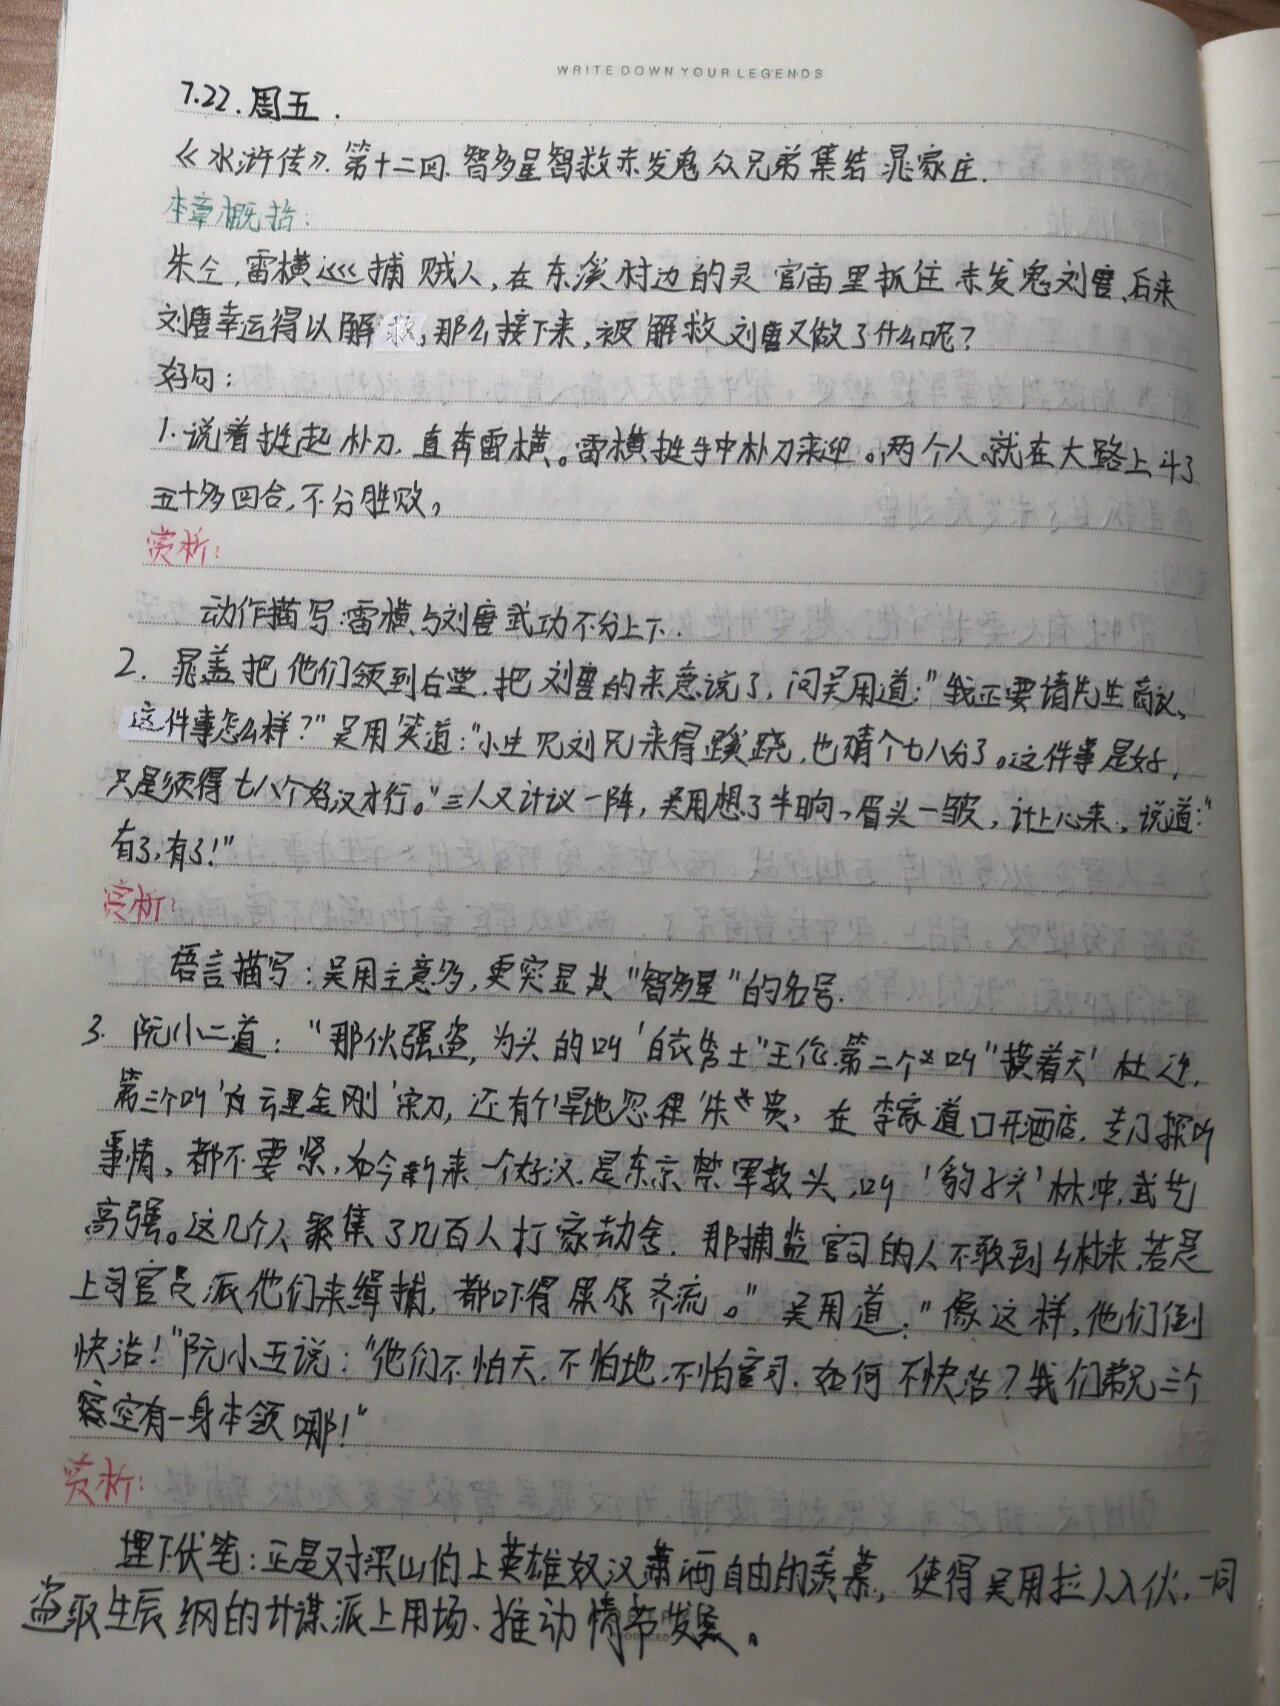 WRITE DOWN YOUR LEGENDS
7.22.周五.
《水浒传》.第十二回.智多星智救赤发鬼众兄弟集结晁家庄.
本章概括:
朱仝,雷横巡捕贼人,在东溪村边的灵官庙里抓住赤发鬼刘唐,后来
刘唐幸运得以解救,那么接下来,被解救刘唐又做了什么呢?
好句:
1.说着挺起朴刀,直奔雷横。雷横挺手中朴刀来迎。两个人就在大路上斗了
五十多回合,不分胜败。
赏析:
动作描写:雷横与刘唐武功不分上下.
2.晁盖把他们领到后堂,把刘唐的来意说了,问吴用道:"我正要请先生商议,
这件事怎么样?"吴用笑道:"小生见刘兄来得蹊跷,也猜个七八分了。这件事是好,
只是须得七八个好汉才行。"三人又计议一阵,吴用想了半晌,眉头一皱,计上心来,说道:"
有了,有了!"
赏析:
语言描写:吴用主意多,更突显其"智多星"的名号.
3.阮小二道:"那伙强盗,为头的叫'白衣秀士"王伦.第二个叫"摸着天'杜迁,
第三个叫'云里金刚'宋万,还有个旱地忽律'朱贵,在李家道口开酒店,专门探听
事情,都不要紧,如今新来一个好汉,是东京禁军教头,叫'豹子头'林冲,武艺
高强。这几个人聚集了几百人打家劫舍.那捕盗官司的人不敢到乡村来,若是
上司官员派他们来缉捕,都吓得屎尿齐流。"吴用道:"像这样,他们倒
快活!"阮小五说:"他们不怕天,不怕地,不怕官司,如何不快活?我们弟兄三个
空有一身本领哪!"
赏析:
埋下伏笔:正是对梁山伯上英雄好汉潇洒自由的羡慕,使得吴用拉人入伙,一同
盗取生辰纲的计谋派上用场,推动情节发展。